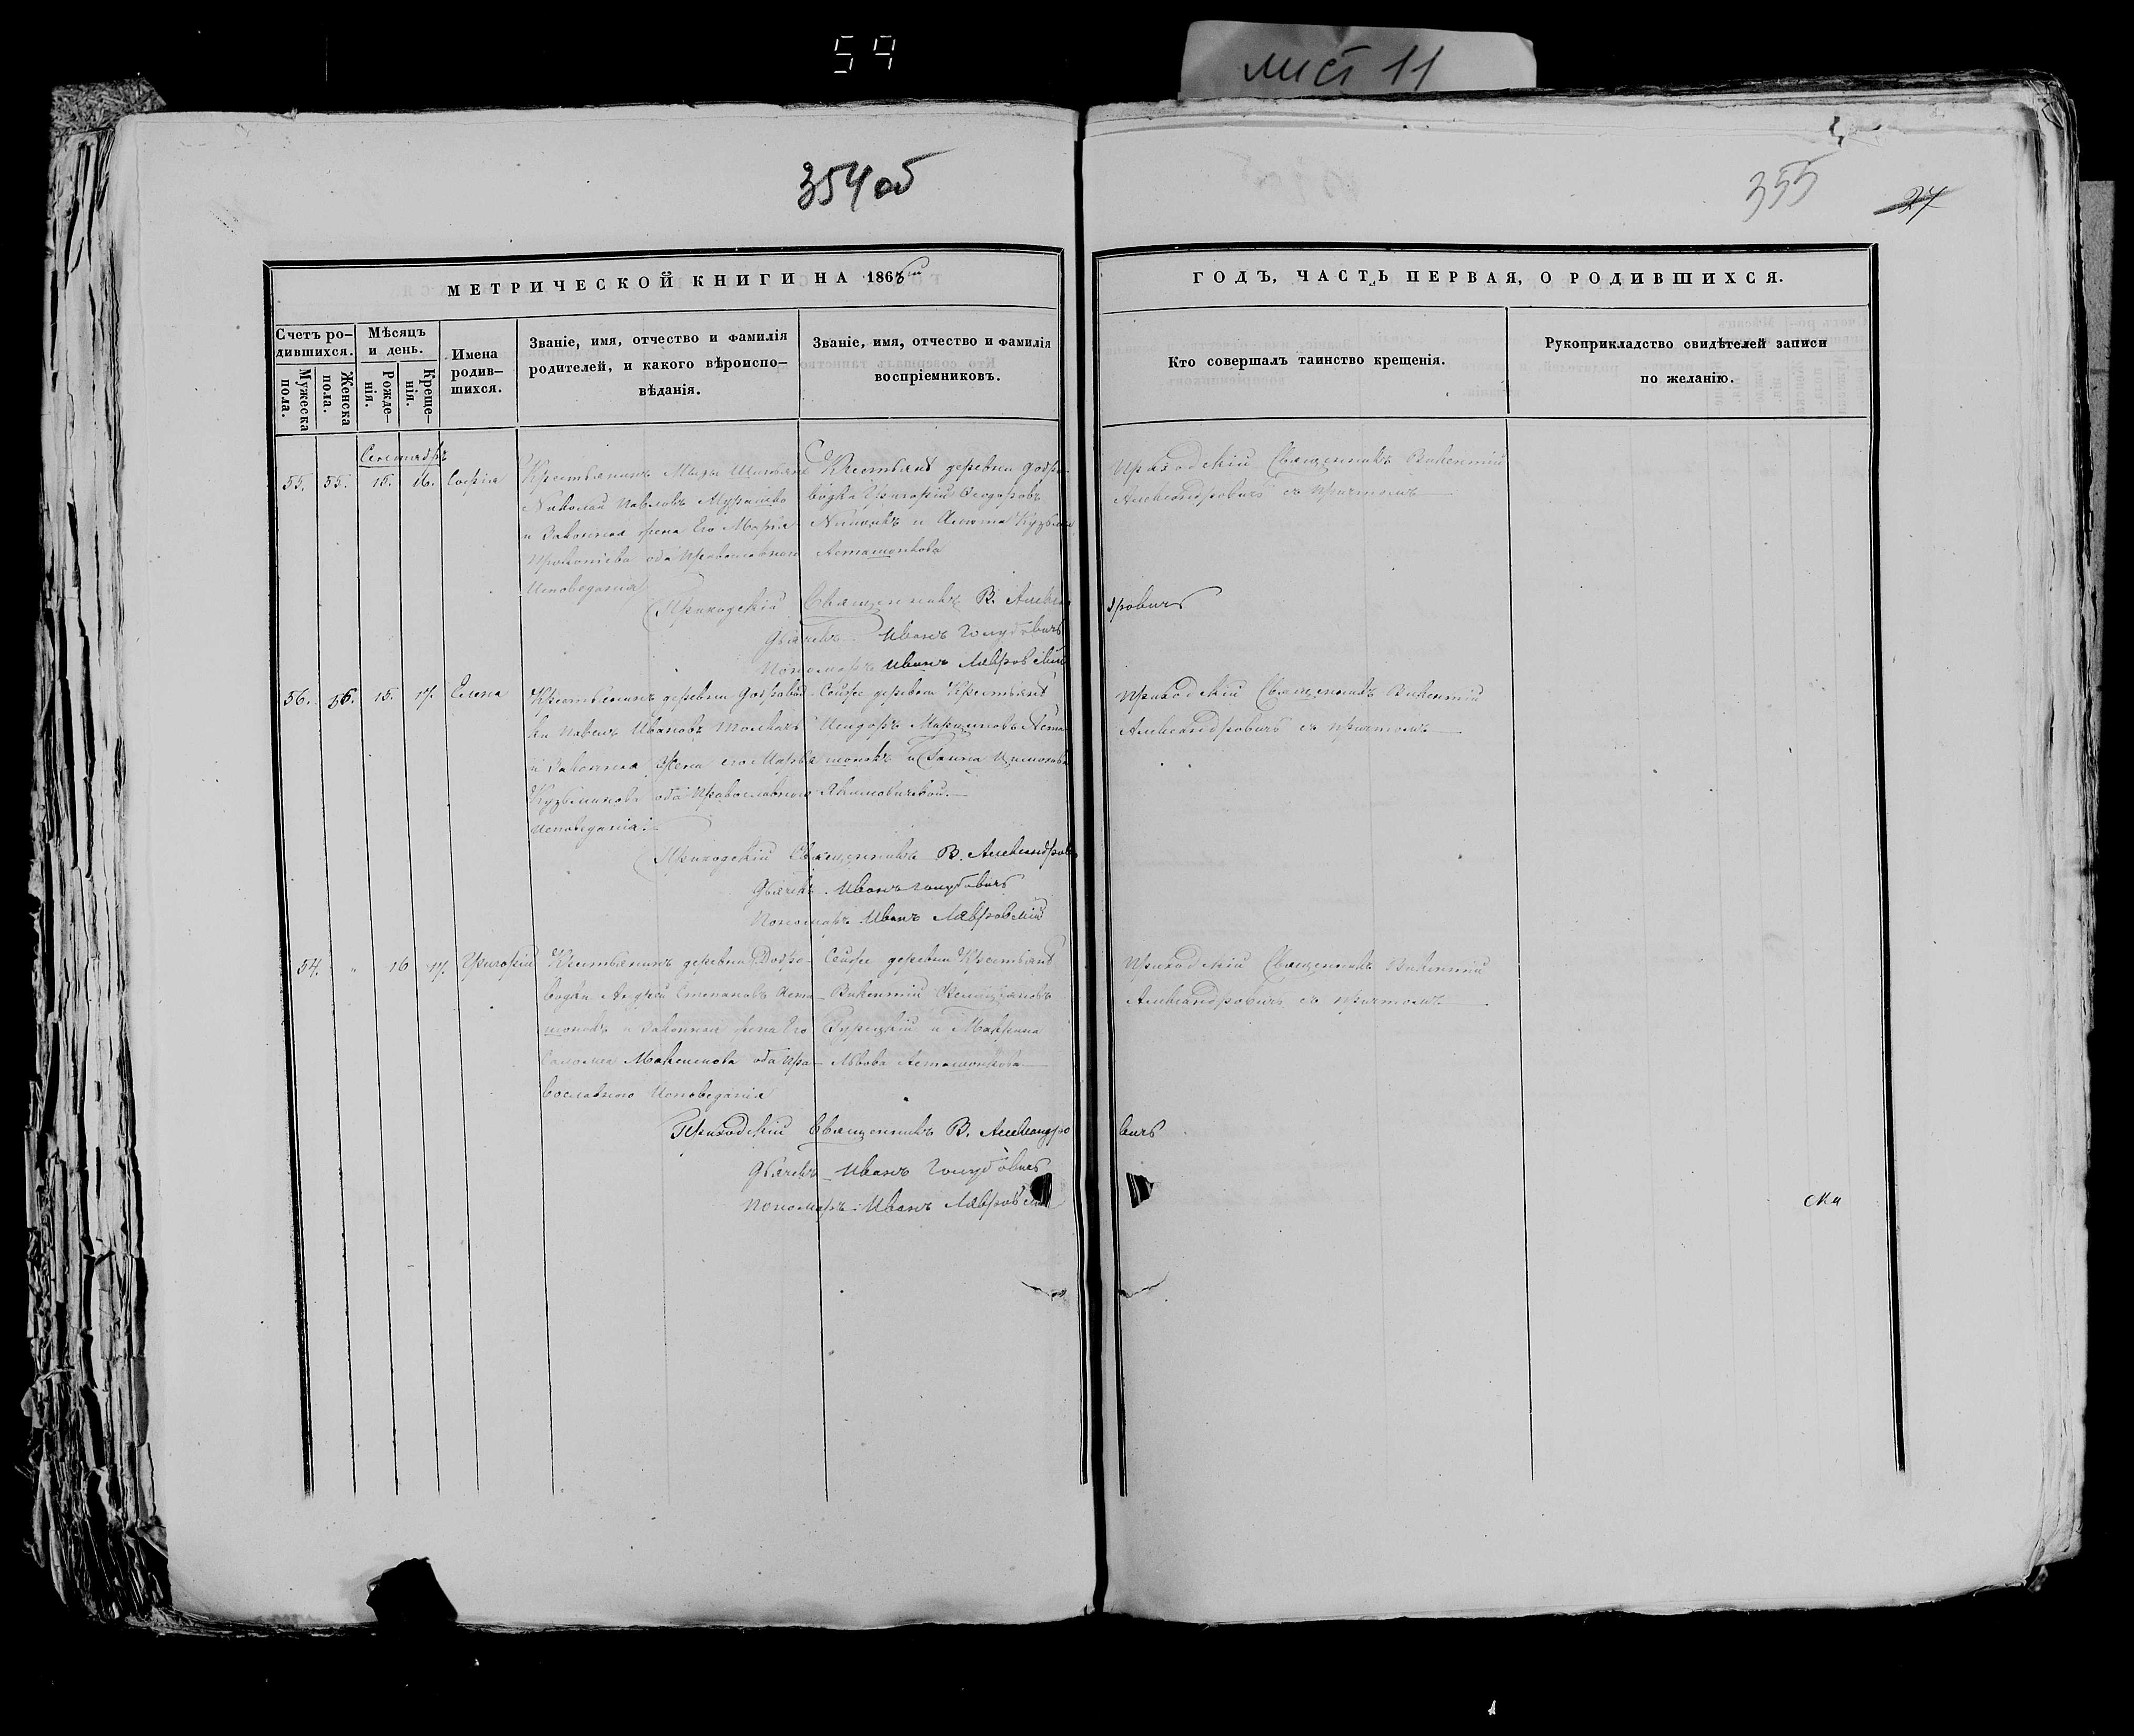 59
лист 11
354 об
355
27
МЕТРИЧЕСКОЙ КНИГИ НА 1863ій
ГОДЪ, ЧАСТЬ ПЕРВАЯ, О РОДИВШИХСЯ.
Счетъ ро-
дившихся.
Мужеска
пола.
Женска
пола.
Мѣсяцъ
и день.
Рожде-
нія.
Креще-
нія.
Имена
родив-
шихся.
Званіе, имя, отчество и фамилія
родителей, и какого вѣроиспо-
вѣданія.
Званіе, имя, отчество и фамилія
воспріемниковъ.
Кто совершалъ таинство крещенія.
Рукоприкладство свидѣтелей записи
по желанію.
Сентябрь
55. 55. 15. 16. Софія
Крестьянинъ
Николай Павловъ
и Законная жена Его Марія
Прокопіева оба Православнаго
Исповеданія
Крестьяне деревни Добро-
водки Григорій Феодоровъ
и Агата Кузьмина
Асташонкова
Приходскій Священникъ Викентій
Александровичъ съ причтомъ
Приходскій Священникъ В. Александровичъ
Дьячекъ Иванъ Голубовичъ
Пономаръ Иванъ Лавровскій
56. 56. 15. 17. Елена
Крестьянинъ деревни Добровод-
ки Павелъ Ивановъ
и Законная Жена его Марья
Кузьминова оба Православнаго
исповеданія.
Сейже деревни Крестьяне
Исидоръ Мартиновъ Аста-
шонокъ и
Якимовичевой.
Приходскій Священникъ Викентій
Александровичъ съ причтомъ
Приходскій Священникъ В. Александров
Дьячекъ Иванъ Голубовичъ
Пономаръ Иванъ Лавровскій
54. " 16 17. Григорій
Крестьянинъ деревни Добро-
водки Андрей Степановъ Аста-
шонокъ и Законная жена Его
Саломея Максимова оба Пра-
вославнаго Исповеданія
Сейже деревни Крестьяне
Викентій
и Макрина
Львова Асташонкова
Приходскій Священникъ Викентій
Александровичъ съ причтомъ
Приходскій Священникъ В. Александровичъ
Дьячекъ Иванъ Голубовичъ
Пономаръ Иванъ Лавровскій
ска